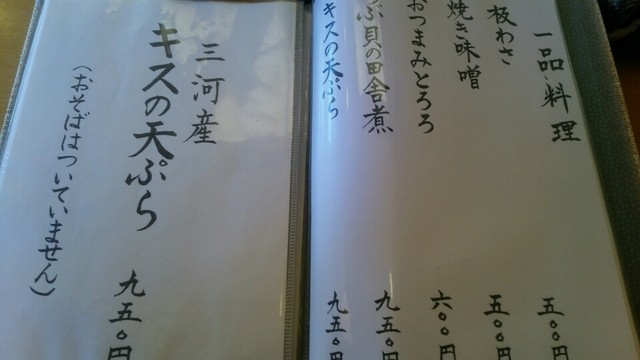 一品料理
板わさ 五〇〇円
焼き味噌 五〇〇円
おつまみとろろ 六〇〇円
ぶ貝の田舎煮 九五〇円
キスの天ぷら 九五〇円
三河産
キスの天ぷら 九五〇円
（おそばはついていません）